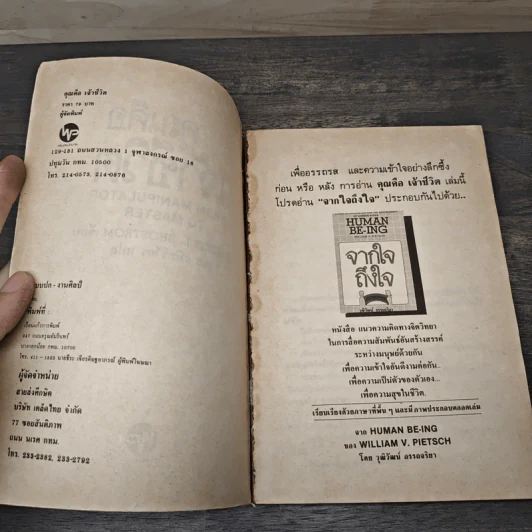 คุณคือ เจ้าชีวิต
ราคา 70 บาท
ผู้จัดพิมพ์
129-131 ถนนสวนหลวง 1 จุฬาลงกรณ์ ซอย
ปทุมวัน กทม. 10500
โทร. 214-0573, 214-0870
แบบปก - งานศิลป์
พิมพ์ที่ :
เรือนแก้วการพิมพ์
ผู้จัดจำหน่าย
สายส่งศึกษิต
บริษัท เคล็ดไทย จำกัด
77 ซอยสันติภาพ
ถนน นเรศ กทม.
โทร. 233-2382, 233-2792
เพื่ออรรถรส และความเข้าใจอย่างลึกซึ้ง
ก่อน หรือ หลัง การอ่าน คุณคือ เจ้าชีวิต เล่มนี้
โปรดอ่าน "จากใจถึงใจ" ประกอบกันไปด้วย..
HUMAN
BE-ING
จากใจ
ถึงใจ
หนังสือ แนวความคิดทางจิตวิทยา
ในการสื่อความสัมพันธ์อันสร้างสรรค์
ระหว่างมนุษย์ด้วยกัน
เพื่อความเข้าใจอันดีงามต่อกัน..
เพื่อความเป็นตัวของตัวเอง...
..เพื่อความสุขในชีวิต.
เรียบเรียงด้วยภาษาที่พื้น ๆ และมีภาพประกอบตลอดเล่ม
จาก HUMAN BE-ING
ของ WILLIAM V. PIETSCH
โดย วุฒิวัฒน์ อรรถจริยา